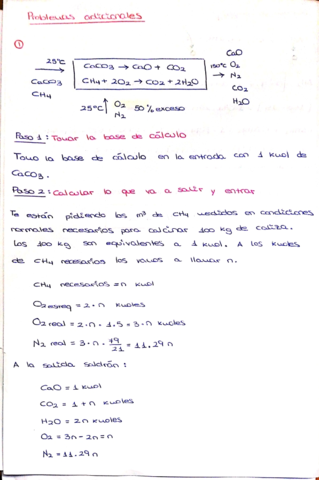 Problemas adicionales
①
25ºC
CaCO3
CH4
CaCO3 → CaO + CO2
CH4 + 2O2 → CO2 + 2H2O
150ºC
CaO
O2
N2
CO2
H2O
25ºC
O2
N2
50% exceso
Paso 1: Tomar la base de cálculo
Tomo la base de cálculo en la entrada con 1 kmol de
CaCO3.
Paso 2: Calcular lo que va a salir y entrar
Te están pidiendo los m³ de CH4 medidos en condiciones
normales necesarios para calcinar 100 kg de caliza.
Los 100 kg son equivalentes a 1 kmol. A los kmoles
de CH4 necesarios los vamos a llamar n.
CH4 necesarios = n kmol
O2 esteq = 2·n kmoles
O2 real = 2·n·1.5 = 3·n kmoles
N2 real = 3·n·79/21 = 11.29n
A la salida saldrán:
CaO = 1 kmol
CO2 = 1+n kmoles
H2O = 2n kmoles
O2 = 3n-2n = n
N2 = 11.29n